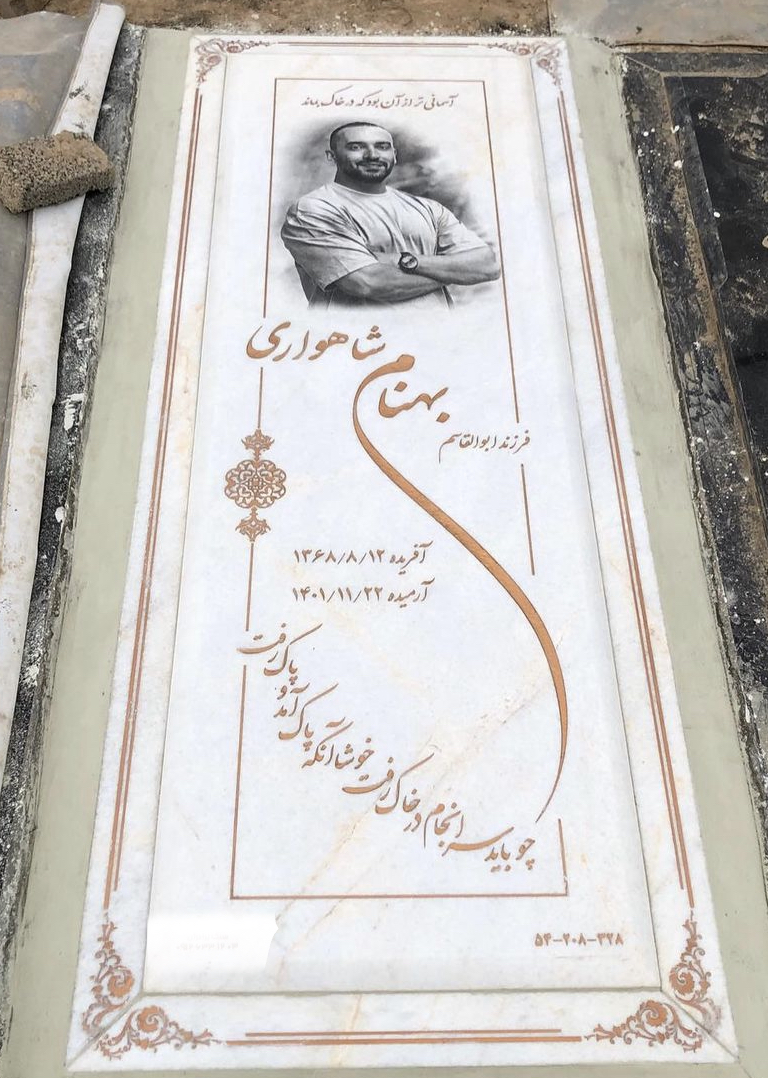 آسمانی تر از آن بود که در خاک بماند
بهنام شاهواری
فرزند ابوالقاسم
آفریده ۱۳۶۸/۸/۱۲
آرمیده ۱۴۰۱/۱۱/۲۲
چو باید سرانجام در خاک رفت
خوشا آنکه پاک آمد و پاک رفت
۵۴-۲۰۸-۳۲۸